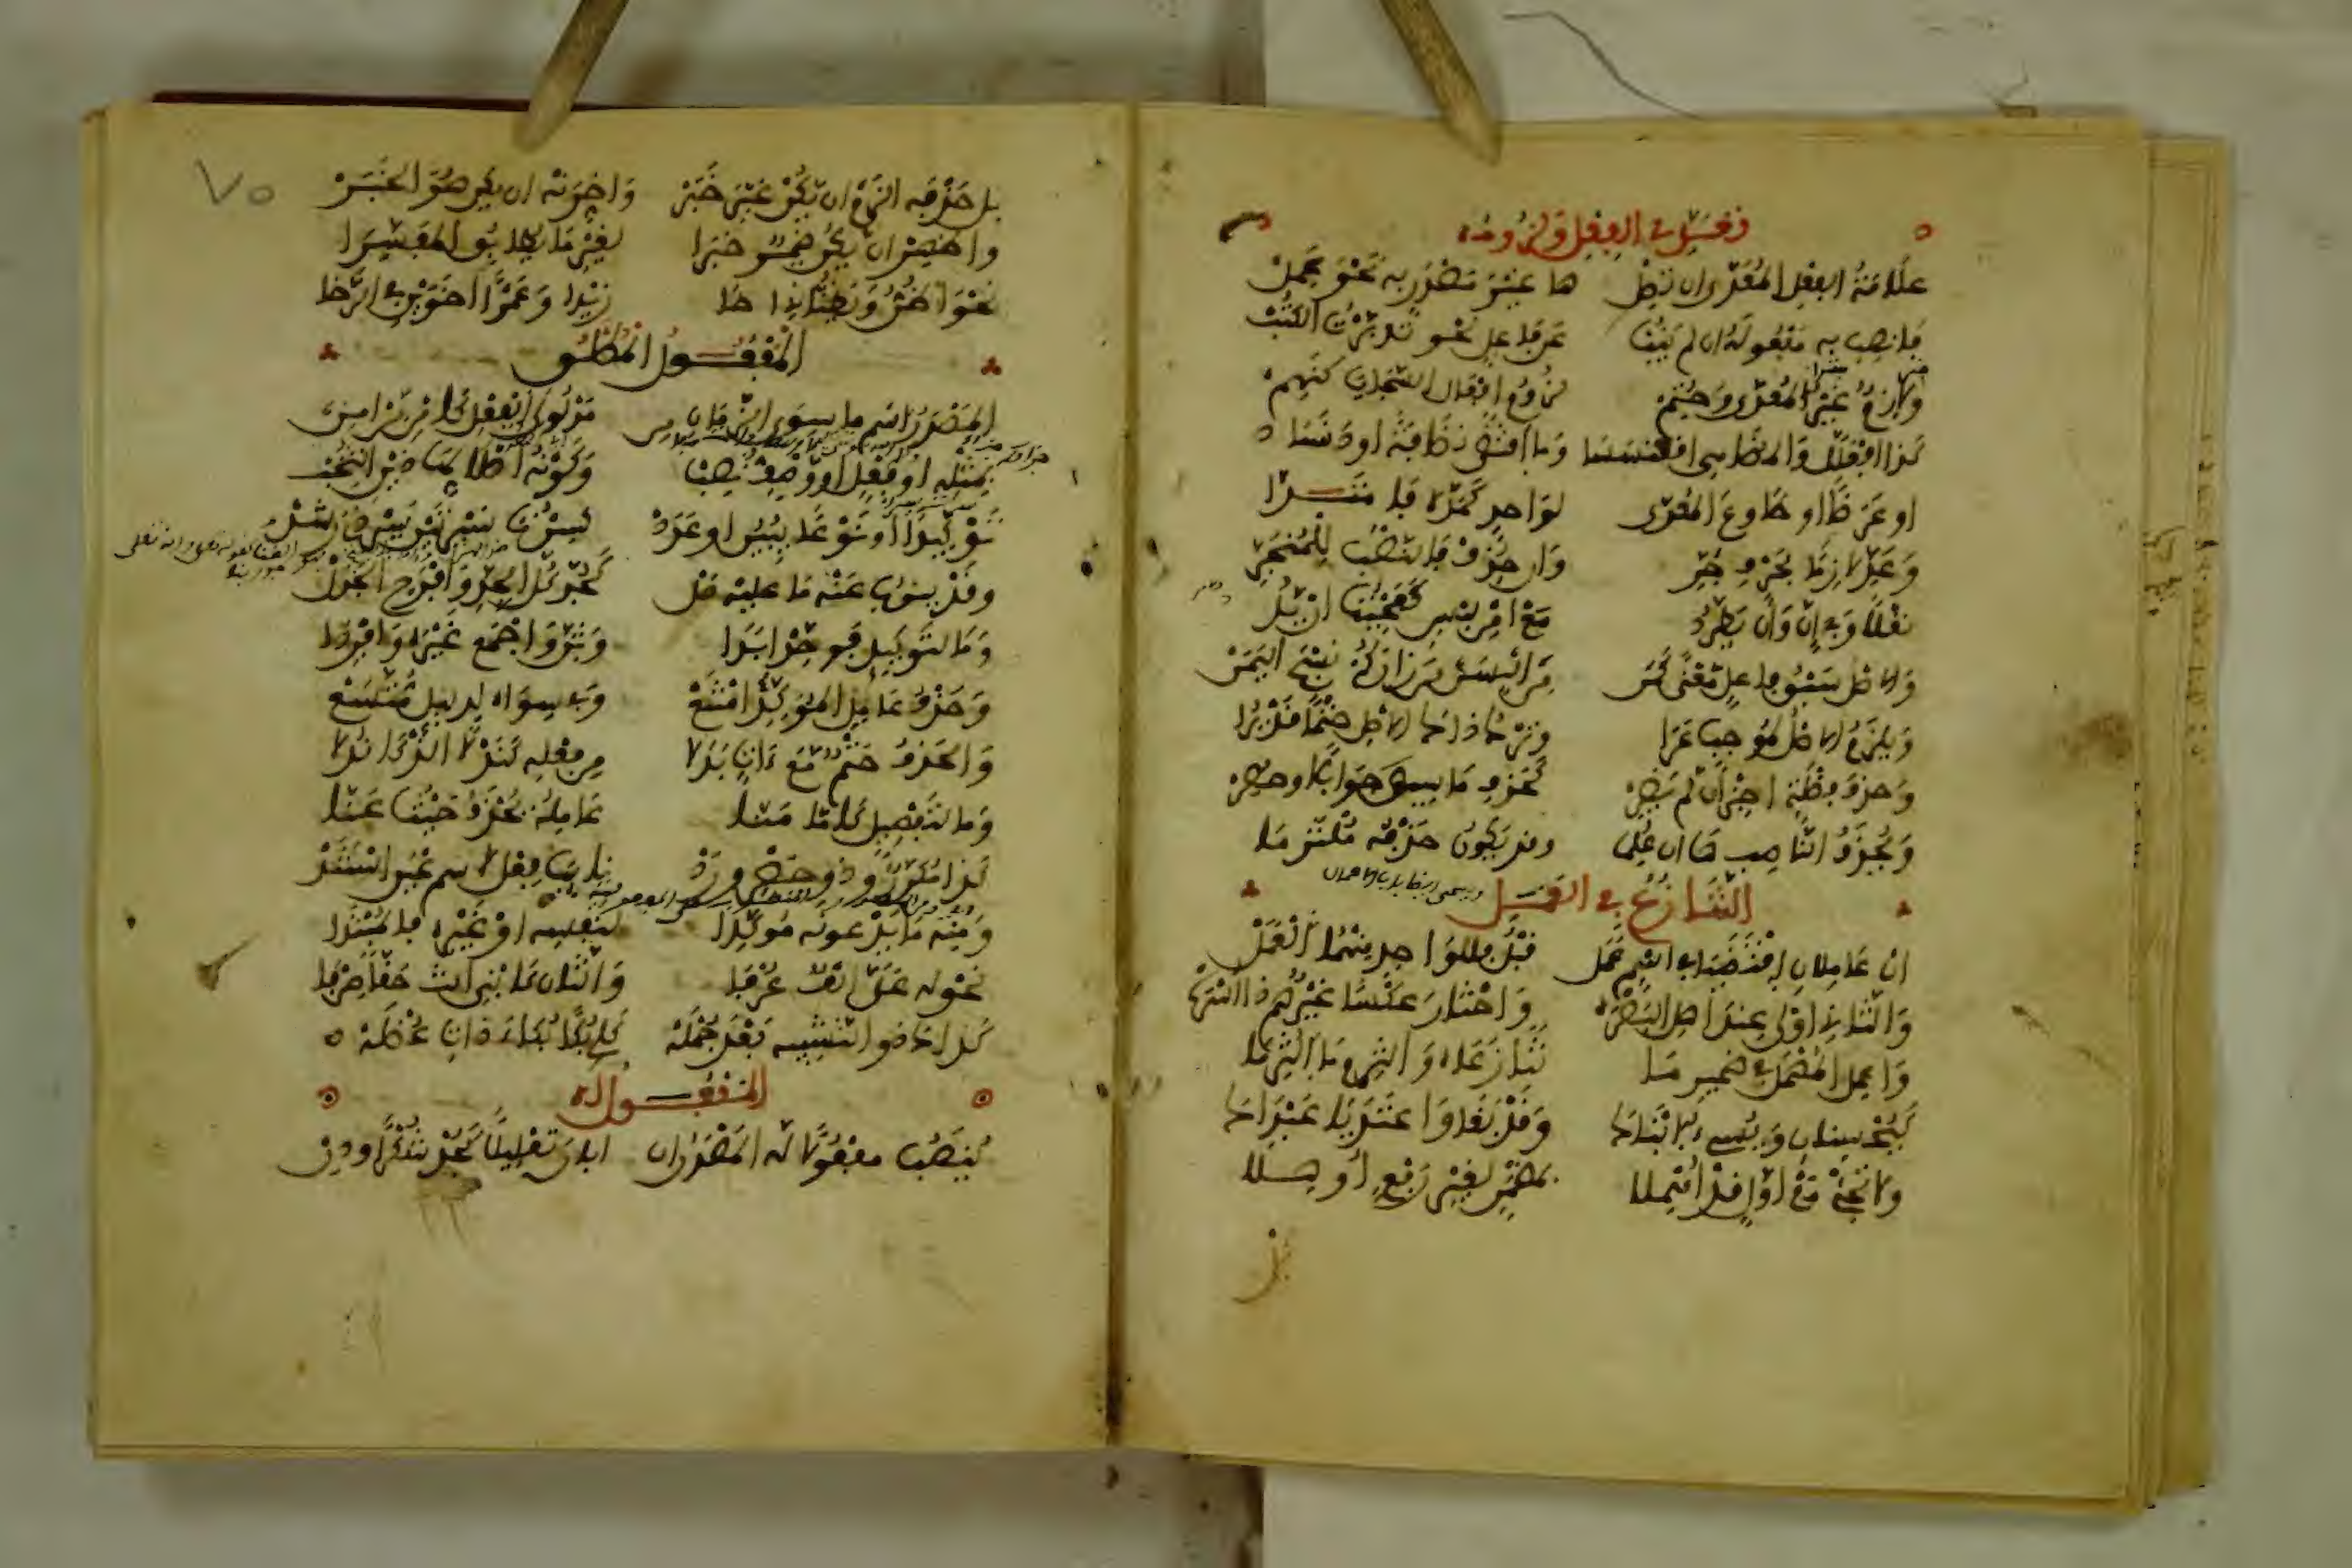 تعدي الفعل ولزومه
علامة الفعل المعدى أن تصل ها غير مصدر به نحو عمل
فانصب به مفعوله إن لم ينب عن فاعل نحو تدبرت الكتب
ولازم غير المعدى وحتم لزوم أفعال السجايا كنهم
كذا افعلل والمضاهي اقعنسسا وما اقتضى نظافة أو دنسا
أو عرضا أو طاوع المعدى لواحد كمده فامتدا
وعد لازما بحرف جر وإن حذف فالنصب للمنجر
نقلا وفي أن وأن يطرد مع أمن لبس كعجبت أن يدوا
والأصل سبق فاعل معنى كمن من ألبسن من زاركم نسج اليمن
ويلزم الأصل لموجب عرا وترك ذاك الأصل حتما قد يرى
وحذف فضلة أجز إن لم يضر كحذف ما سيق جوابا أو حصر
ويحذف الناصبها إن علما وقد يكون حذفه ملتزما
التنازع في العمل
إن عاملان اقتضيا في اسم عمل قبل فللواحد منهما العمل
والثاني أولى عند أهل البصرة واختار عكسا غيرهم ذا أسرة
وأعمل المهمل في ضمير ما تنازعاه والتزم ما التزما
كيحسنان ويسيء ابناكا وقد بغى واعتديا عبداكا
ولا تجئ مع أول قد أهملا بمضمر لغير رفع أوهلا
بل
٧٥
بل حذفه الزم إن يكن غير خبر وأخرنه إن يكن هو الخبر
وأظهر ان يكن ضمير خبرا لغير ما يطابق المفسرا
نحو أظن ويظناني أخا زيدا وعمرا أخوين في الرخا
المفعول المطلق
المصدر اسم ما سوى الزمان من مدلولي الفعل كأمن من أمن
بمثله أو فعل أو وصف نصب وكونه أصلا لهذين انتخب
توكيدا أو نوعا يبين أو عدد كسرت سيرتين سير ذي رشد
وقد ينوب عنه ما عليه دل كجد كل الجد وافرح الجذل
وما لتوكيد فوحد أبدا وثن واجمع غيره وأفردا
وحذف عامل المؤكد امتنع وفي سواه لدليل متسع
والحذف حتم مع آت بدلا من فعله كندلا اللذ كاندلا
وما لتفصيل كإما منا عامله يحذف حيث عنا
كذا مكرر وذو حصر ورد نائب فعل لاسم عين استند
ومنه ما يدعونه مؤكدا لنفسه أو غيره فالمبتدا
نحو له علي ألف عرفا والثان كابني أنت حقا صرفا
كذاك ذو التشبيه بعد جمله كلي بكا بكاء ذات عضله
المفعول له
ينصب مفعولا له المصدر إن أبان تعليلا كجد شكرا ودن